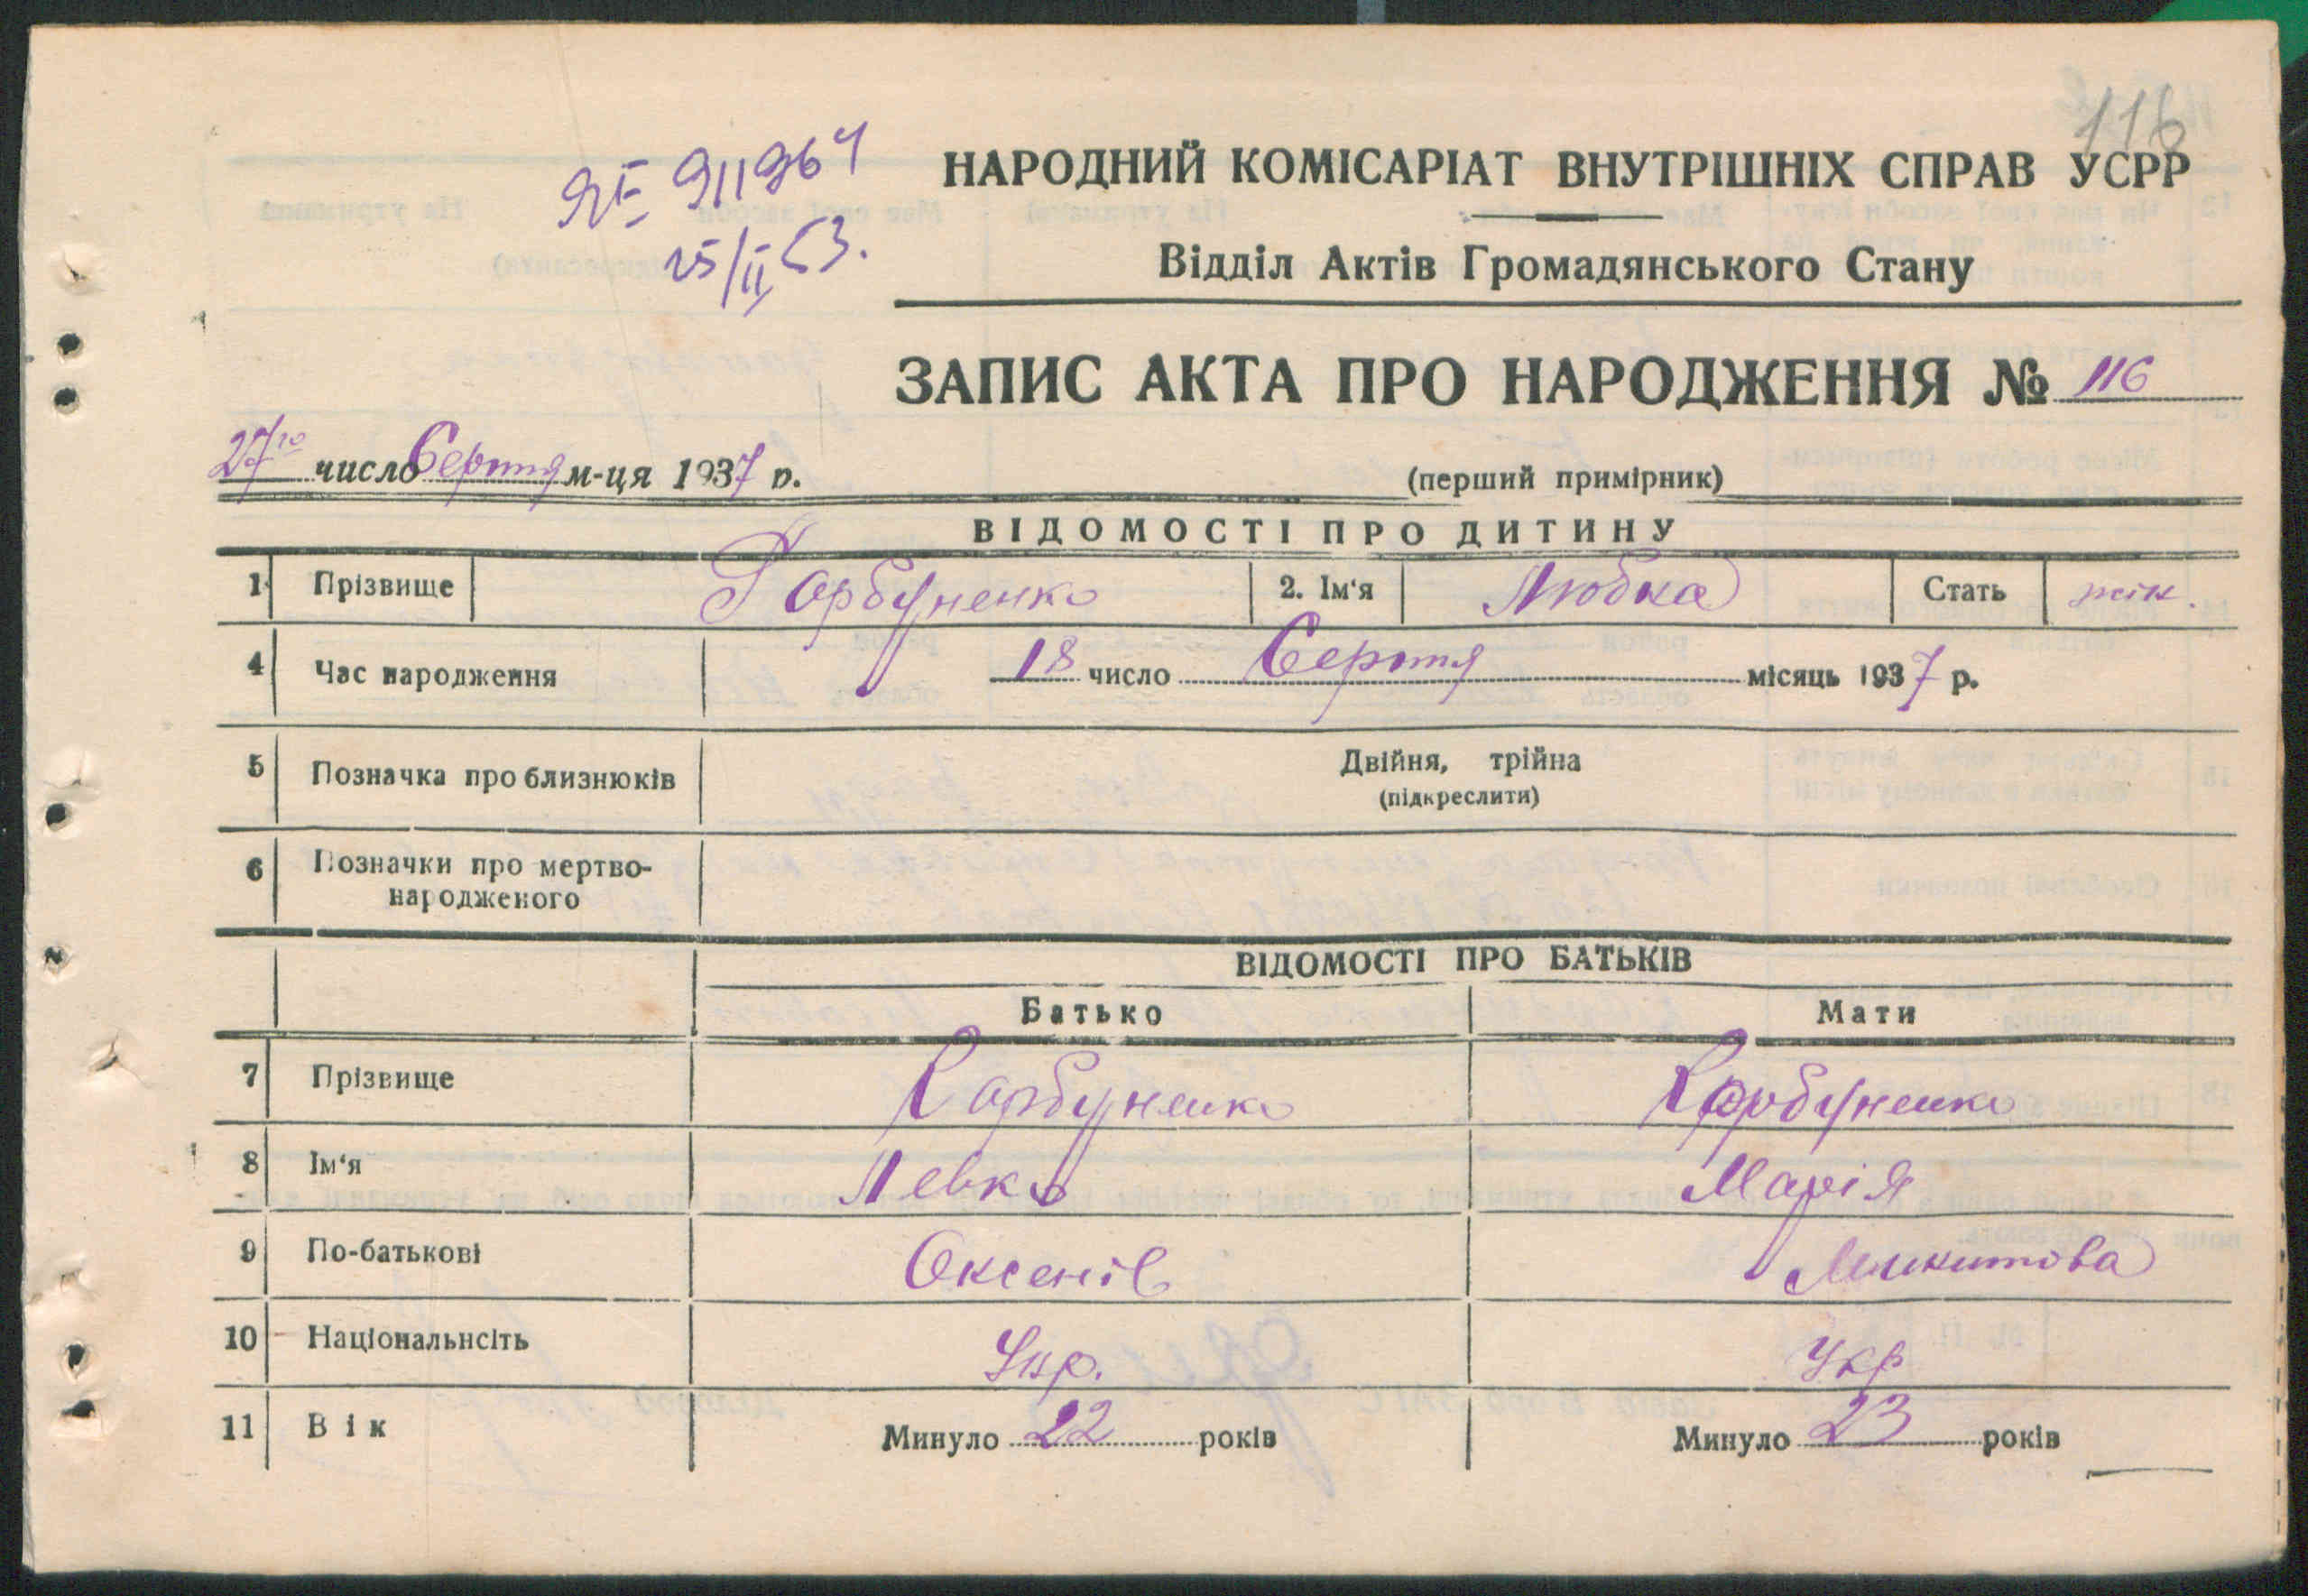 116
ЯЕ 911964
25/II 53.
НАРОДНИЙ КОМІСАРІАТ ВНУТРІШНІХ СПРАВ УСРР
Відділ Актів Громадянського Стану
ЗАПИС АКТА ПРО НАРОДЖЕННЯ № 116
27го число Серпня м-ця 1937 р.
(перший примірник)
ВІДОМОСТІ ПРО ДИТИНУ
1 Прізвище Горбуненко 2. Ім‘я Любка Стать жін.
4 Час народження 18 число Серпня місяць 1937 р.
5 Позначка про близнюків Двійня, трійна
(підкреслити)
6 Позначки про мертво-
народженого
ВІДОМОСТІ ПРО БАТЬКІВ
Батько Мати
7 Прізвище Горбуненко Горбуненко
8 Ім‘я Левко Марія
9 По-батькові Оксенів Микитова
10 Національнсіть Укр. Укр
11 Вік Минуло 22 років Минуло 23 років